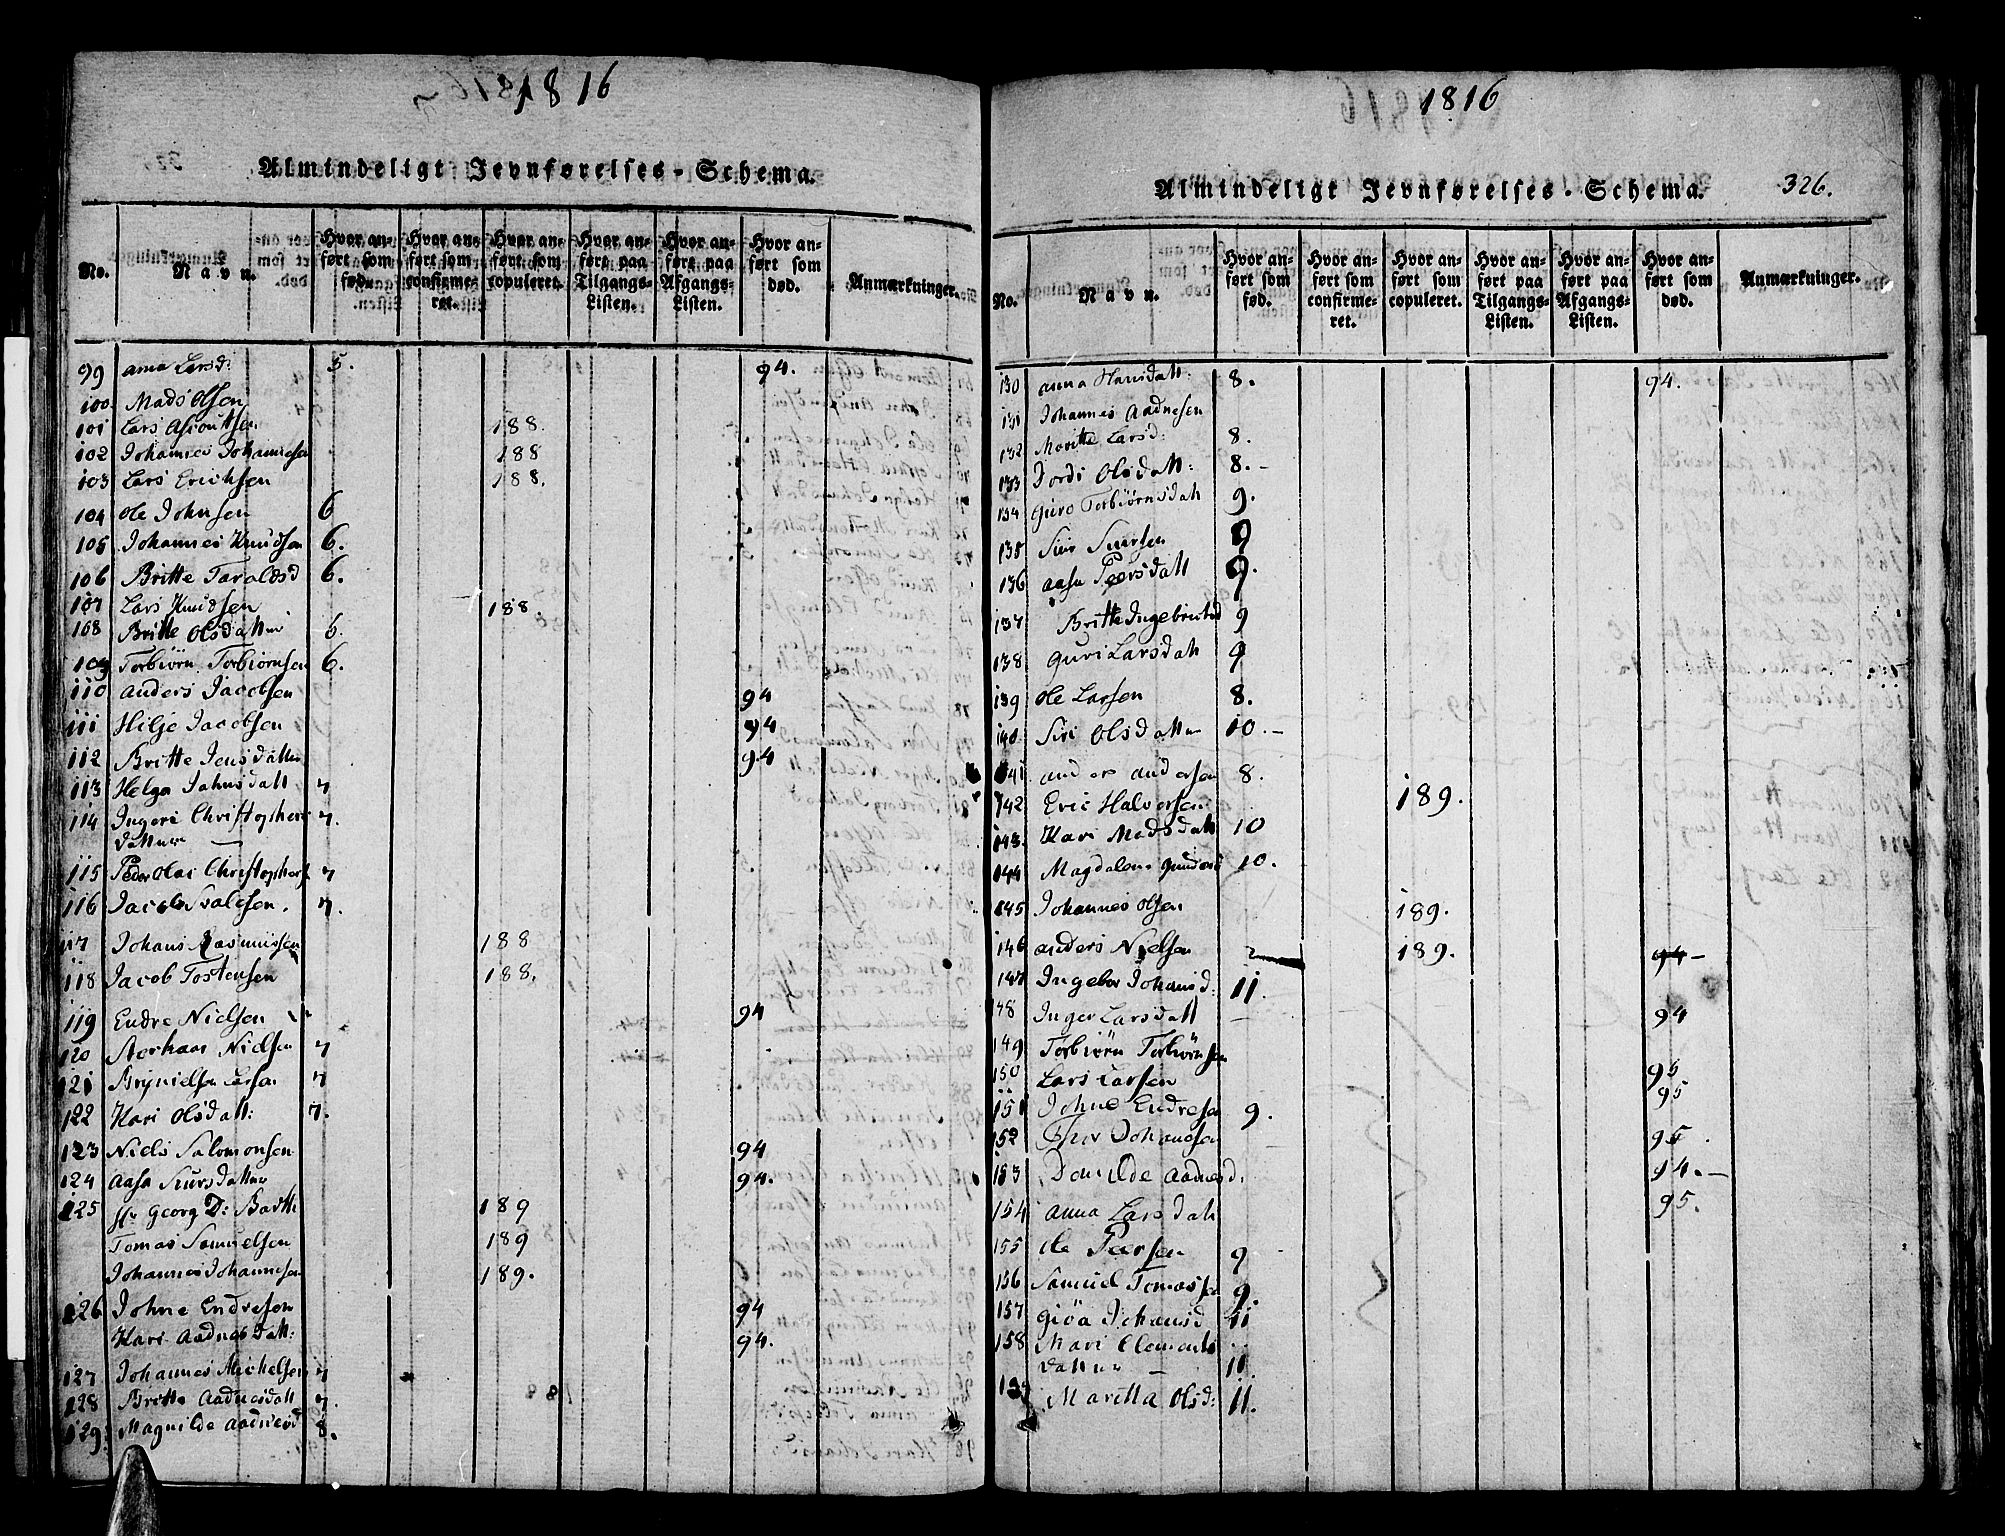 1816
Almindeligt Jevnførelses-Schema.
No. Navn. Hvor anført som fød. Hvor anført som confirmeret. Hvor anført som copuleret. Hvor anført paa Tilgangs-Listen. Hvor anført paa Afgangs-Listen. Hvor anført som død. Anmærkninger.
99 Anna Larsd: 5. 94.
100 Mads Olsen
101 Lars 188.
102 Johannes Johannesen 188
103 Lars Erichsen 188.
104 Ole Johnsen 6
105 Johannes Knudsen 6.
106 Britte Taraldsd 6.
107 Lars Knudsen 188.
108 Britte Olsdatter 6.
109 Torbiörn Torbiörnsen 6.
110 Anders Jacobsen 94
111 Hilje Jacobsen 94
112 Britte Jensdatter 94
113 Helga Jahnsdatt 7
114 Ingeri Christophers 7.
datter
115 Peder Olai Christophers 7
116 Jacob 7.
117 Johans Rasmussen 188
118 Jacob Tostensen 188.
119 Endre Nielsen 94
120 Nielsen 7
121 Larsen 7
122 Kari Olsdatt: 7.
123 Niels Salomonsen 94
124 Aasa Siursdatter 94.
125 Hr Georg D: Barth 189
Tomas Samuelsen 189
Johannes Johannesen 189.
126 Johne Endresen 94
Kari Aadnesdatt: 94.
127 Johannes Michelsen 7
128 Britte Aadnesdatt 7.
129 Magnilde Aadnesd 8.
1816
Almindeligt Jevnførelses-Schema. 326.
No. Navn. Hvor anført som fød. Hvor anført som confirmeret. Hvor anført som copuleret. Hvor anført paa Tilgangs-Listen. Hvor anført paa Afgangs-Listen. Hvor anført som død. Anmærkninger.
130 Anna Hansdatt: 8. 94.
131 Johannes Aadnesen
132 Maritte Larsd: 8.
133 Jordi Olsdatt: 8.-
134 Guro Torbiörnsdatt 9.
135 Siur Siursen 9
136 Aasa Peersdatt 9.
137 Britte Ingebrigtsd 9
138 Guri Larsdatt 9
139 Ole Larsen 8.
140 Siri Olsdatter 10.-
141 Anders Andersen 8.
142 Eric Halvorsen 189.
143. Kari Madsdatt 10
144 Magdalena 10.
145 Johannes Olsen 189.
146 Anders Nielsen 189. 94-
147 Ingebor Johansd: 11.
148 Inger Larsdatt - 94
149 Torbiörn Torbiörnsen
150 Lars Larsen 95
95
151 Johne Endresen 9.
152 Johansen 95.
153 Aadnesd. 94.-
154 Anna Larsdatt 95.
155 Ole Peersen 9
156 Samuel Tomassen 9.
157 Giöa Johansd 11
158 Mari Clements
datter - 11.
159 Maritta Olsd: 11.